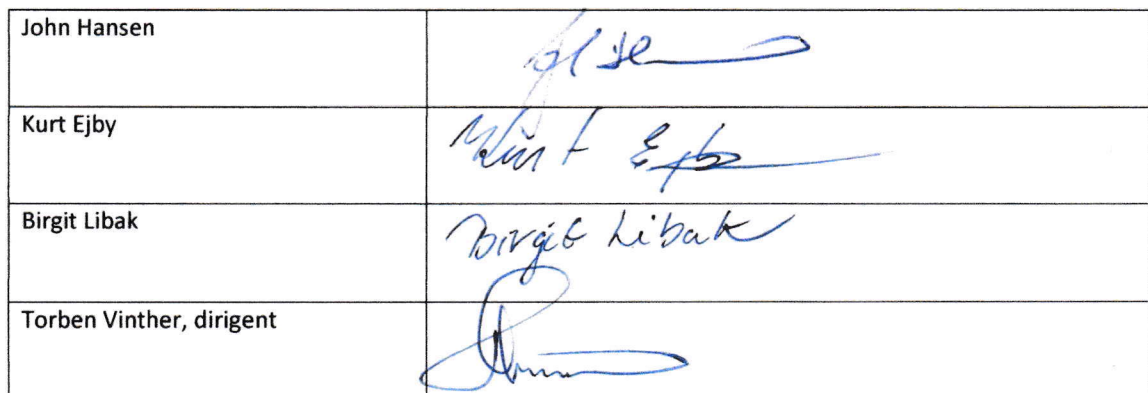 John Hansen
Kurt Ejby
Kurt Ejby
Birgit Libak
Birgit Libak
Torben Vinther, dirigent